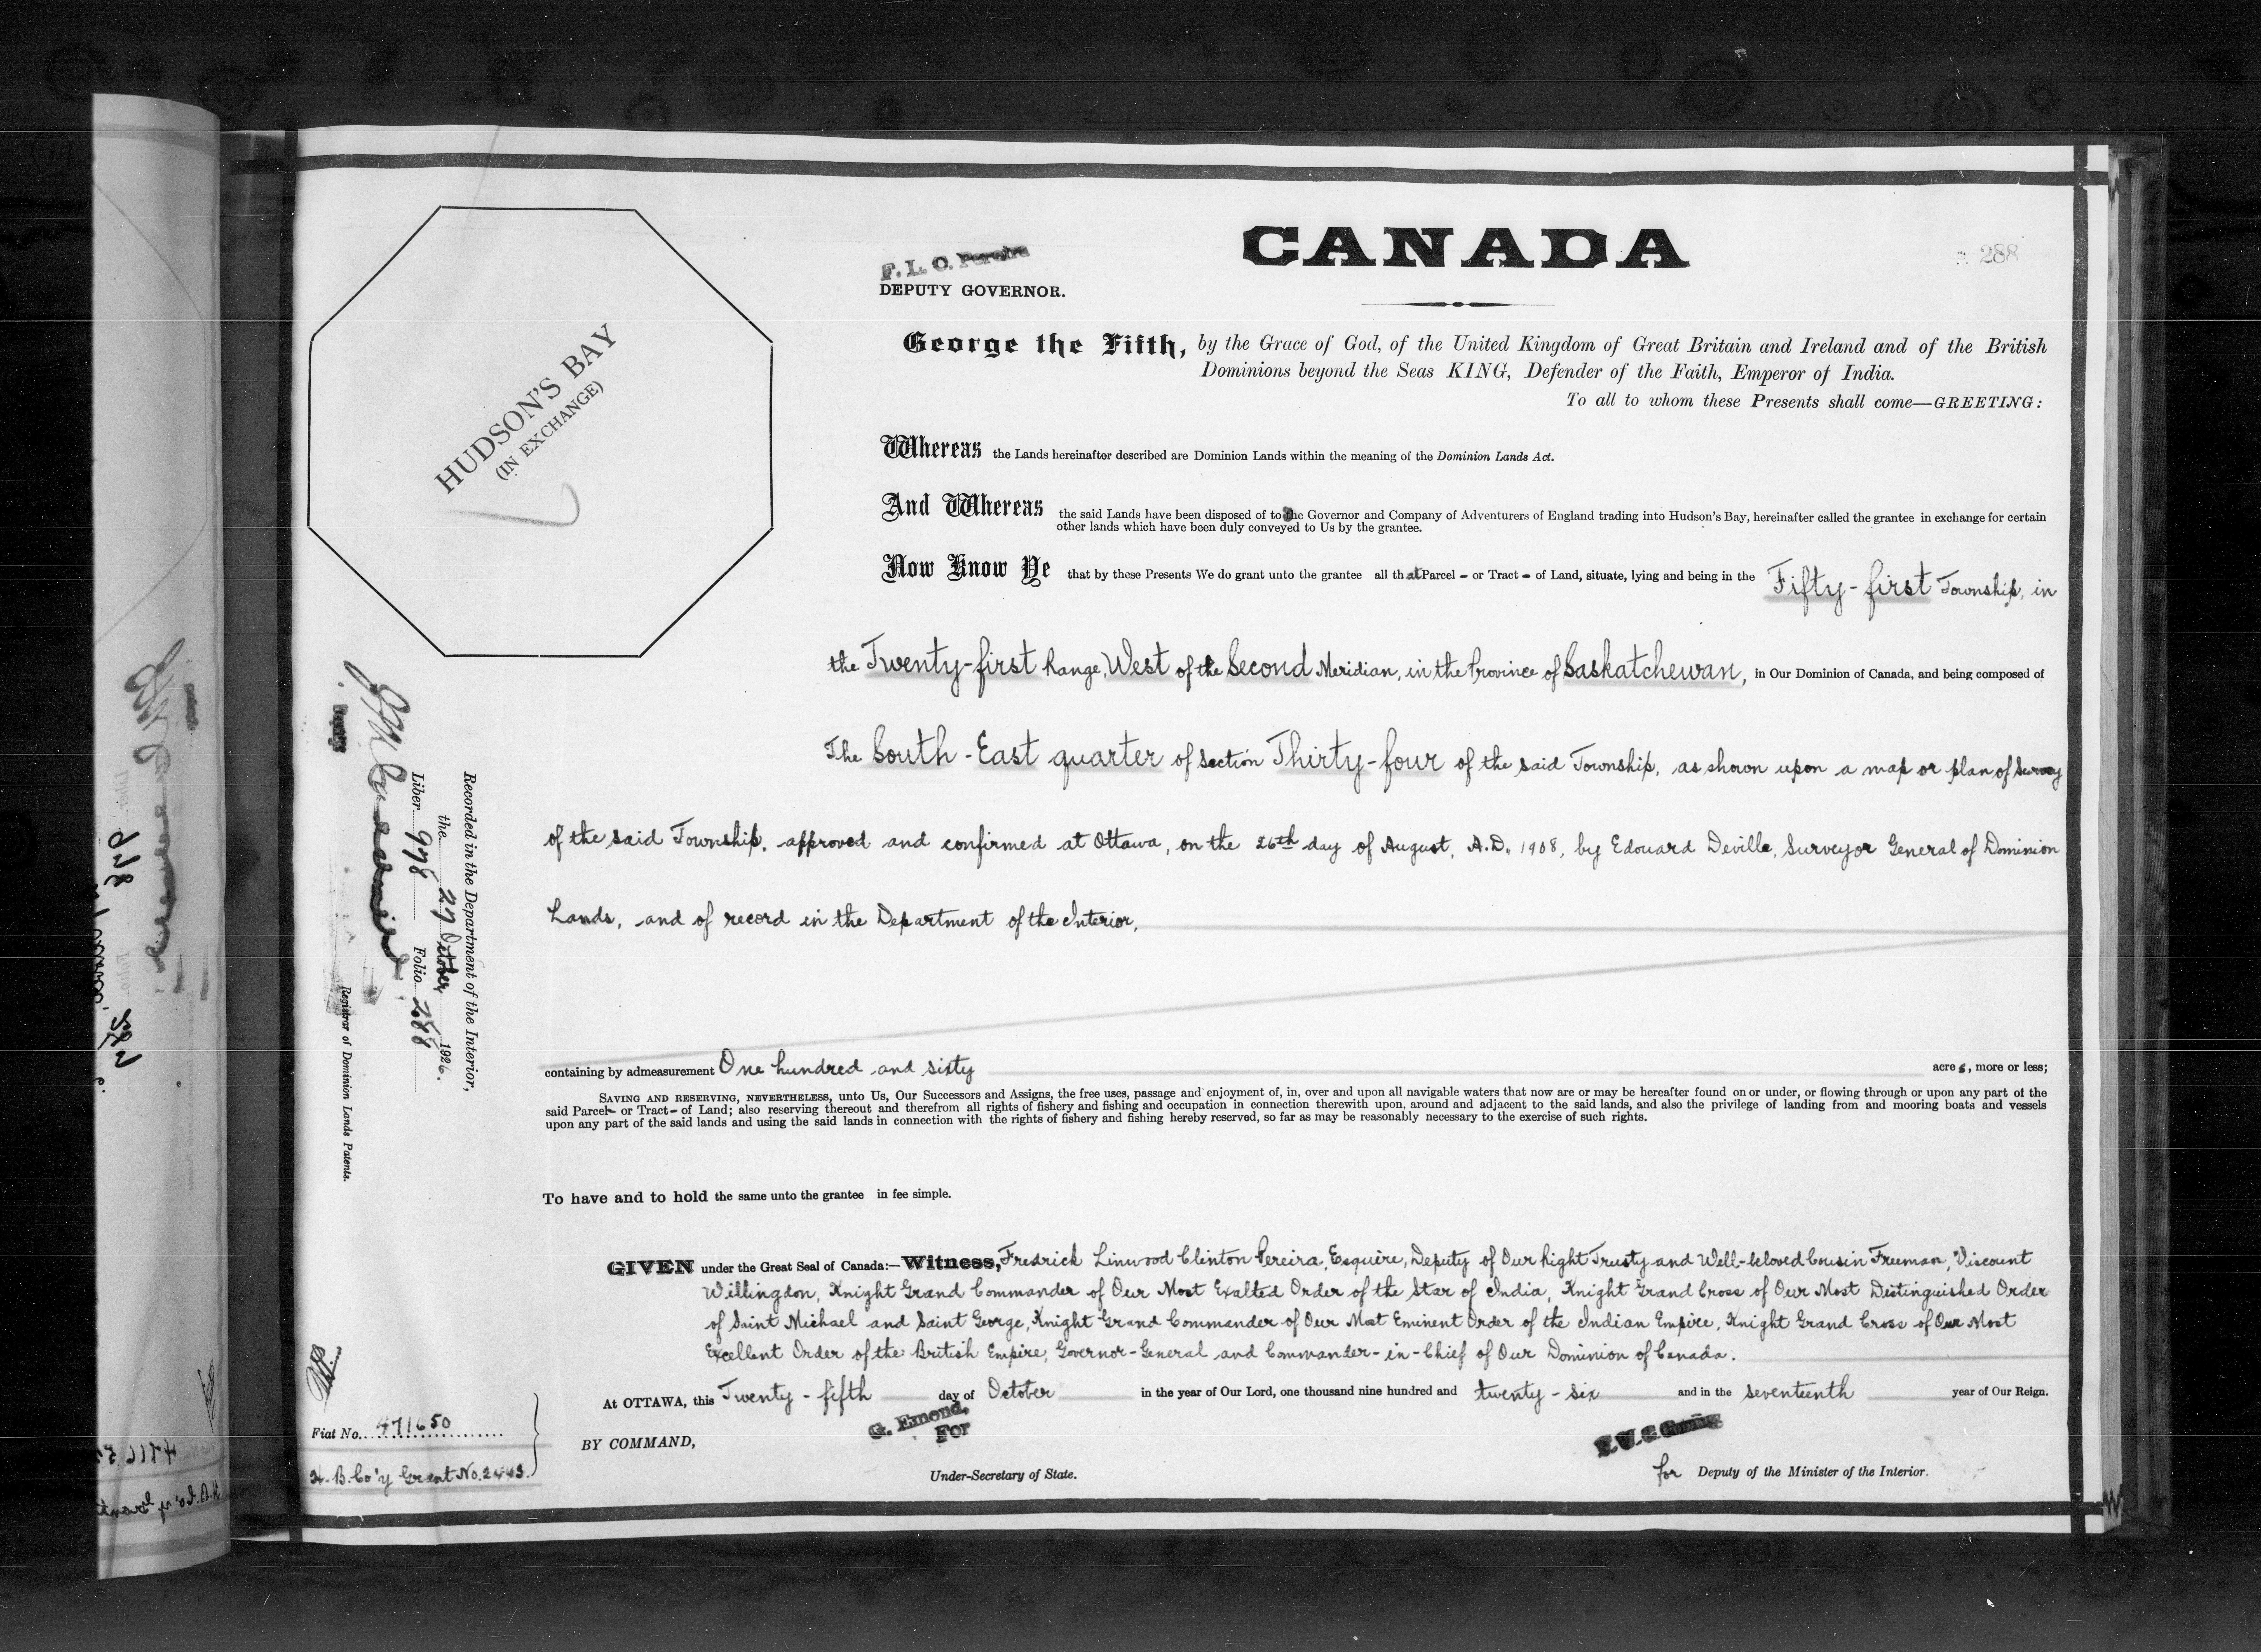 CANADA
288
F. L. C. Pereira
DEPUTY GOVERNOR.
HUDSON'S BAY
(IN EXCHANGE)
George the Fifth, by the Grace of God, of the United Kingdom of Great Britain and Ireland and of the British
Dominions beyond the Seas KING, Defender of the Faith, Emperor of India.
To all to whom these Presents shall come—GREETING:
Whereas the Lands hereinafter described are Dominion Lands within the meaning of the Dominion Lands Act.
And Whereas the said Lands have been disposed of to the Governor and Company of Adventurers of England trading into Hudson's Bay, hereinafter called the grantee in exchange for certain
other lands which have been duly conveyed to Us by the grantee.
Now Know Ye that by these Presents We do grant unto the grantee all that Parcel - or Tract - of Land, situate, lying and being in the Fifty-first Township, in
the Twenty-first Range, West of the Second Meridian, in the Province of Saskatchewan, in Our Dominion of Canada, and being composed of
The South-East quarter of section Thirty-four of the said Township, as shown upon a map or plan of survey
of the said Township, approved and confirmed at Ottawa, on the 26th day of August, A.D. 1908, by Edouard Deville, Surveyor General of Dominion
Lands, and of record in the Department of the Interior,
containing by admeasurement One hundred and sixty acres, more or less;
SAVING AND RESERVING, NEVERTHELESS, unto Us, Our Successors and Assigns, the free uses, passage and enjoyment of, in, over and upon all navigable waters that now are or may be hereafter found on or under, or flowing through or upon any part of the
said Parcel- or Tract- of Land; also reserving thereout and therefrom all rights of fishery and fishing and occupation in connection therewith upon, around and adjacent to the said lands, and also the privilege of landing from and mooring boats and vessels
upon any part of the said lands and using the said lands in connection with the rights of fishery and fishing hereby reserved, so far as may be reasonably necessary to the exercise of such rights.
To have and to hold the same unto the grantee in fee simple.
GIVEN under the Great Seal of Canada:—Witness, Fredrick Linwood Clinton Pereira, Esquire, Deputy of Our Right Trusty and Well-beloved Cousin Freeman, Viscount
Willingdon, Knight Grand Commander of Our Most Exalted Order of the Star of India, Knight Grand Cross of Our Most Distinguished Order
of Saint Michael and Saint George, Knight Grand Commander of Our Most Eminent Order of the Indian Empire, Knight Grand Cross of Our Most
Excellent Order of the British Empire, Governor-General and Commander-in-Chief of Our Dominion of Canada.
At OTTAWA, this Twenty-fifth day of October in the year of Our Lord, one thousand nine hundred and twenty-six and in the seventeenth year of Our Reign.
BY COMMAND,
G. Emond,
For
Under-Secretary of State.
for Deputy of the Minister of the Interior.
Recorded in the Department of the Interior,
the 27 October 1926.
Liber 978 Folio 288
Deputy
Registrar of Dominion Lands Patents.
Fiat No. 471650
H.B. Co'y Grant No. 2443.